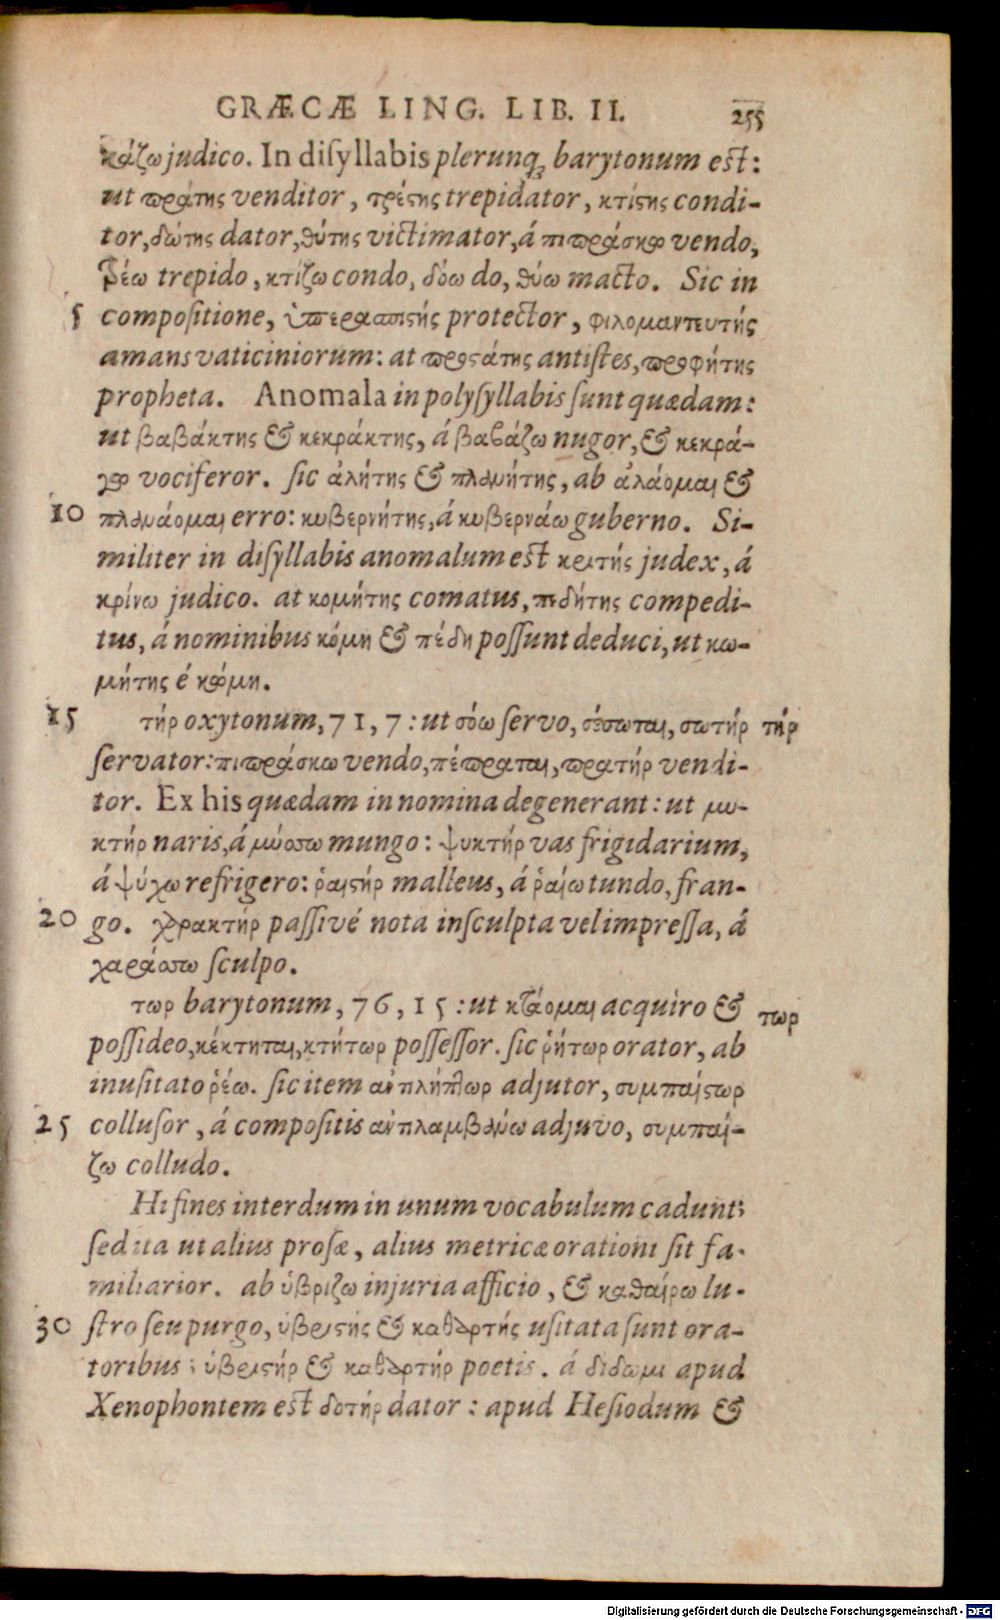 GRÆCÆ LING. LIB. II. 255
κάζω judico. In diſyllabis plerunq; barytonum eſt:
ut πράτης venditor, τρέστης trepidator, κτίστης condi-
tor, δώτης dator, θύτης victimator, á πιπράσκω vendo,
τρέω trepido, κτίζω condo, δόω do, θύω macto. Sic in
5 compoſitione, ὑπερασπιστής protector, φιλομαντευτής
amans vaticiniorum: at προστάτης antiſtes, προφήτης
propheta. Anomala in polyſyllabis ſunt quædam:
ut βαβάκτης & κεκράκτης, á βαβάζω nugor, & κεκρά-
γω vociferor. ſic ἀλήτης & πλανήτης, ab ἀλάομαι &
10 πλανάομαι erro: κυβερνήτης, á κυβερνάω guberno. Si-
militer in diſyllabis anomalum eſt κριτής judex, á
κρίνω judico. at κομήτης comatus, πεδήτης compedi-
tus, á nominibus κόμη & πέδη poſſunt deduci, ut κω-
μήτης é κώμη.
15 τήρ oxytonum, 71, 7: ut σόω ſervo, σέσωται, σωτήρ τήρ
ſervator: πιπράσκω vendo, πέπραται, πρατήρ vendi-
tor. Ex his quædam in nomina degenerant: ut μυ-
κτήρ naris, á μύσσω mungo: ψυκτήρ vas frigidarium,
á ψύχω refrigero: ῥαιστήρ malleus, á ῥαίω tundo, fran-
20 go. χαρακτήρ paſſivé nota inſculpta vel impreſſa, á
χαράσσω ſculpo.
τωρ barytonum, 76, 15: ut κτάομαι acquiro & τωρ
poſſideo, κέκτηται, κτήτωρ poſſeſſor. ſic ῥήτωρ orator, ab
inuſitato ῥέω. ſic item ἀντιλήπτωρ adjutor, συμπαίστωρ
25 colluſor, á compoſitis ἀντιλαμβάνω adjuvo, συμπαί-
ζω colludo.
Hi fines interdum in unum vocabulum cadunt;
ſed ita ut alius proſæ, alius metricæ orationi ſit fa-
miliarior. ab ὑβρίζω injuria afficio, & καθαίρω lu-
30 ſtro ſeu purgo, ὑβριστής & καθαρτής uſitata ſunt ora-
toribus; ὑβριστήρ & καθαρτήρ poetis. á δίδωμι apud
Xenophontem eſt δοτήρ dator: apud Heſiodum &
Digitalisierung gefördert durch die Deutsche Forschungsgemeinschaft - DFG